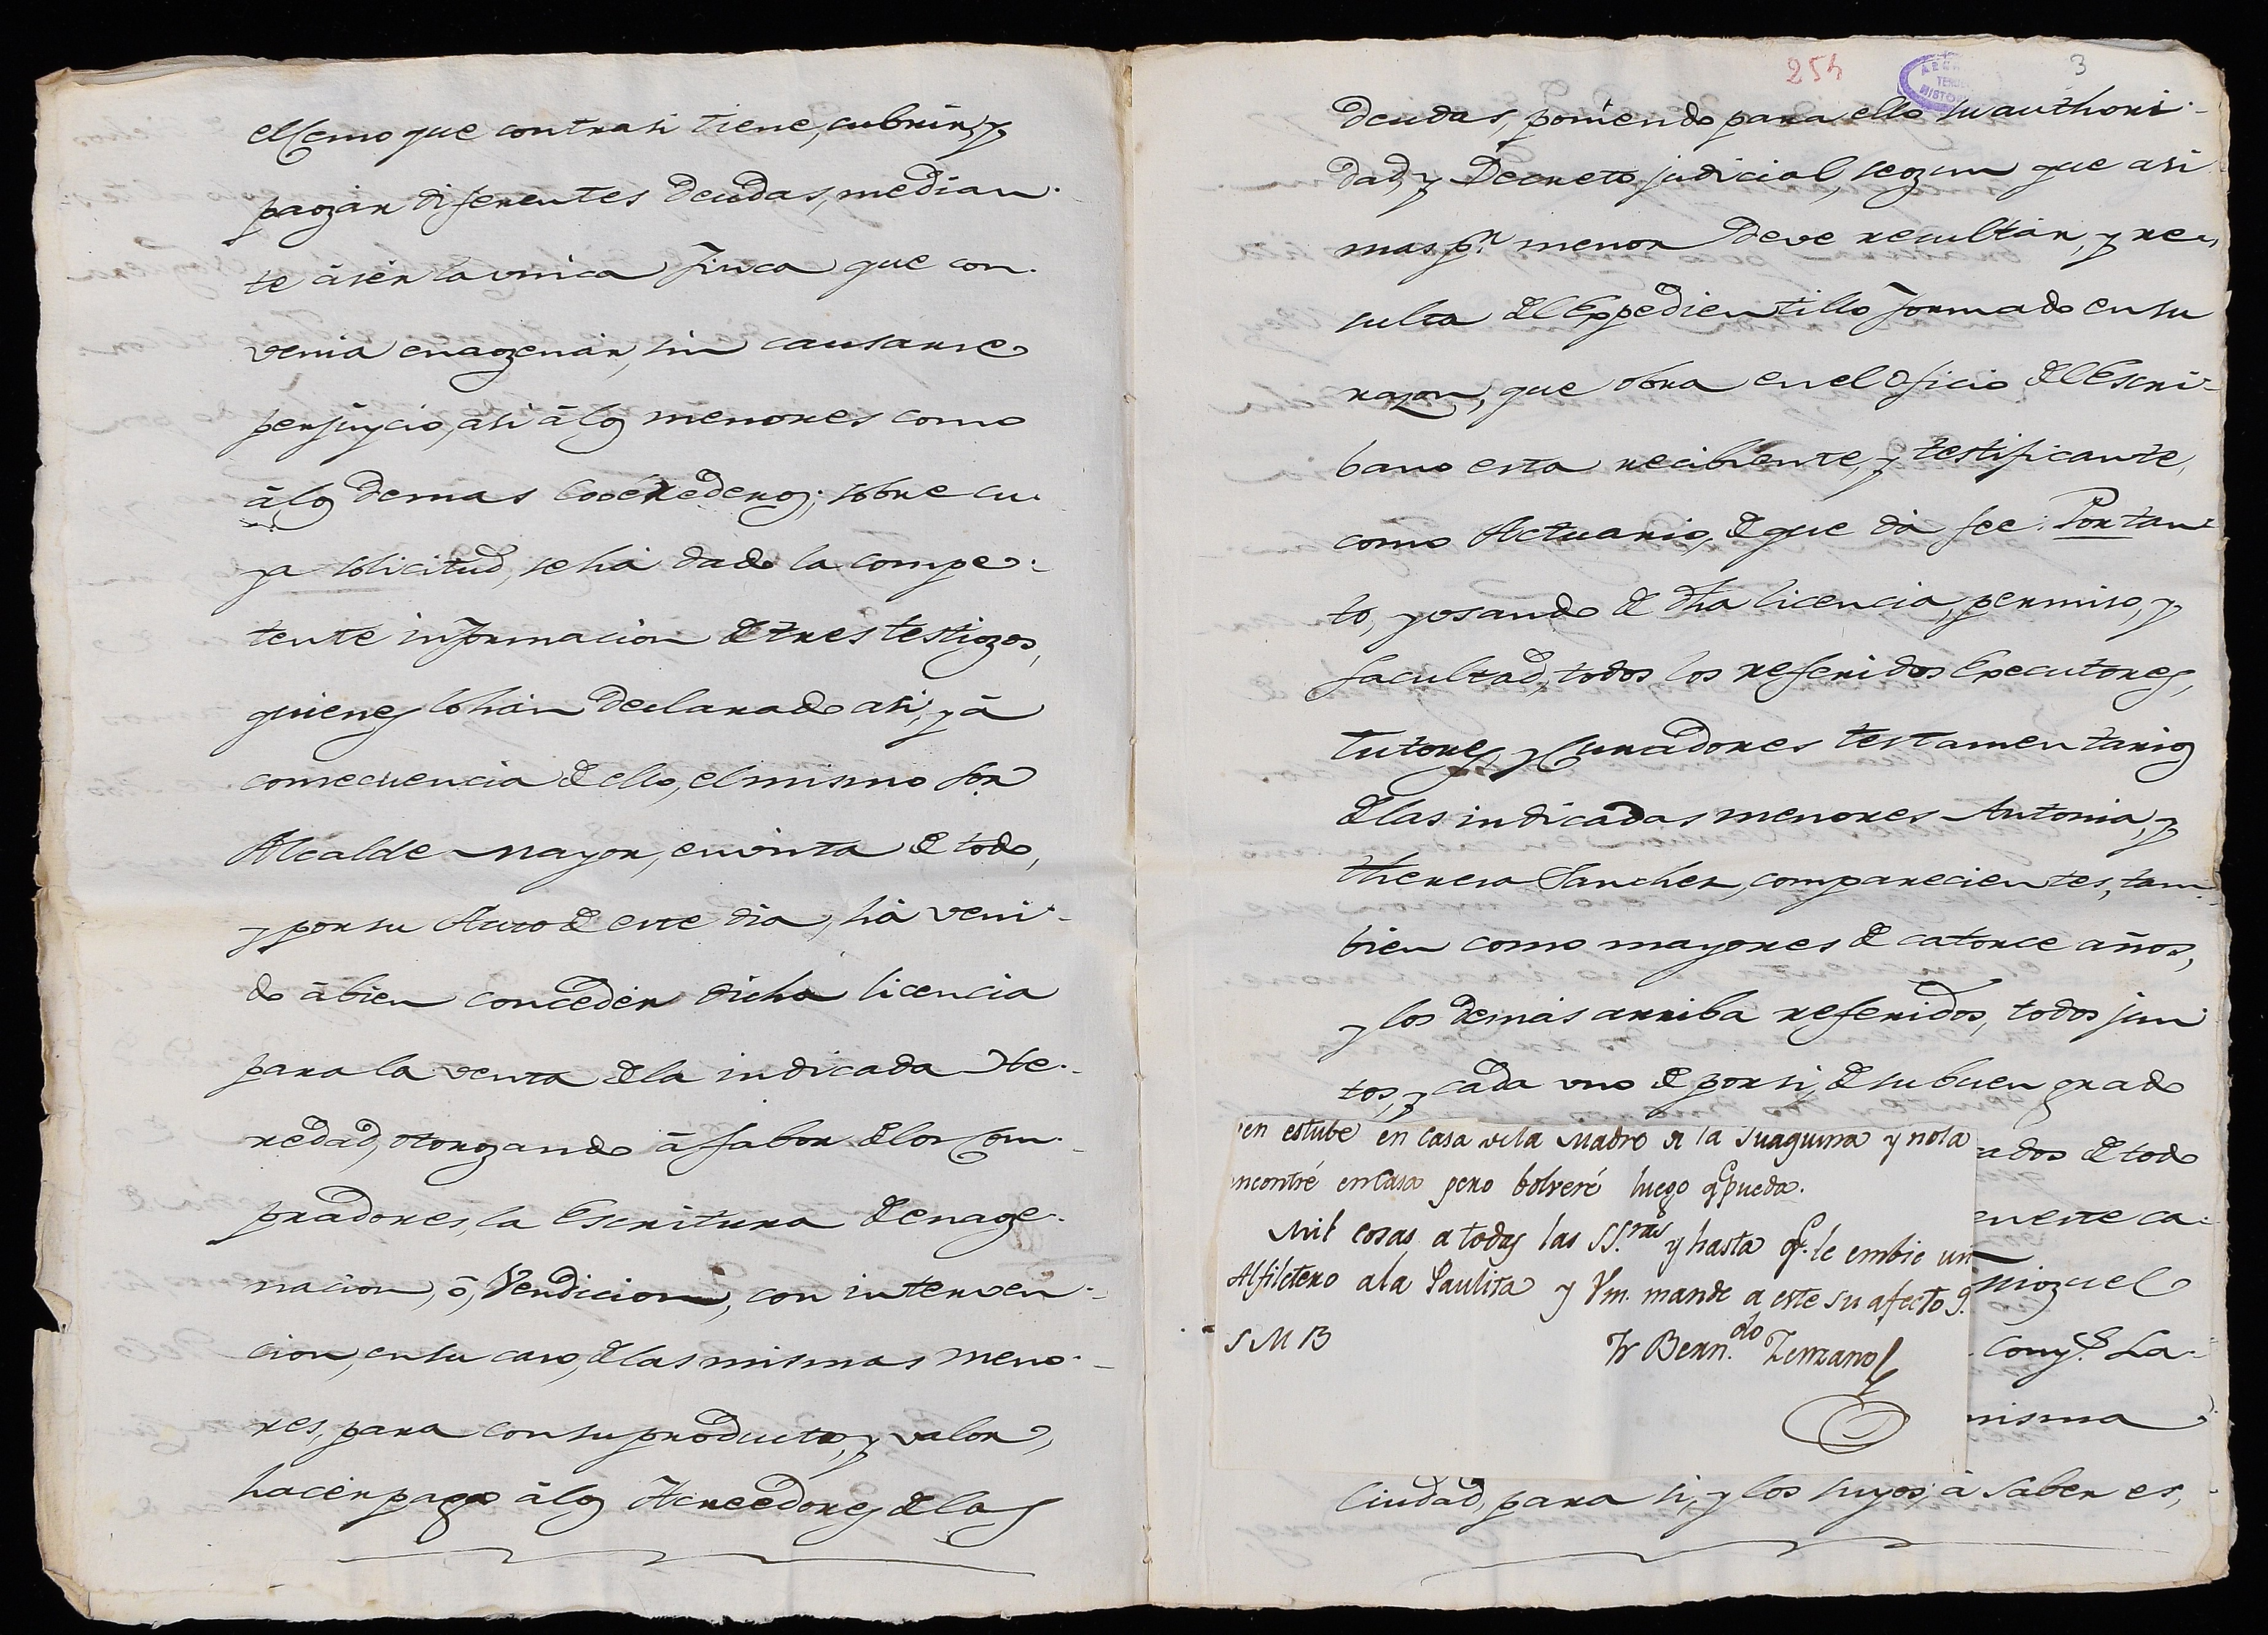 el Censo que contra si tiene, cubrir, y
pagár diferentes deudas, median-
te à sér la unica Finca que con-
venia enagenár, sin causarse
perjuycio, asi à los menores como
à los demas Coérederos; sobre cu-
ya solicitud, se há dado la compe-
tente informacion de tres testigos,
quienes lo hán declarado asi, y à
consecuencia de ello, el mismo Sor
Alcalde mayor, en vista de todo,
y por su Auto de este dia, há veni-
do à bien concedér dicha licencia
para la venta de la indicada He-
redad, otorgando à fabor de los Com-
pradores, la Escritura de enage-
nacion, ó, Vendicion, con interven-
cion, en su caso, de las mismas meno-
res, para con su producto, y valor,
hacér pago à los Acreedores de las
254
3
deudas, poniendo para ello su authori-
dad, y Decreto judicial, segun que asi
mas pr. menor deve resultár, y re-
sulta del Expedientillo formado en su
razon, que obra en el oficio del Escri-
bano esta recibiente, y testificante,
como Actuario, de que dá fee: Por tan-
to, y osando de dha licencia, permiso, y
facultad, todos los referidos Executores,
Tutores, y Curadores testamentarios
de las indicadas menores Antonia, y
Theresa Sanchez, comparecientes, tam-
bien como mayores de catorce años,
y los demás arriba referidos, todos jun-
tos, y cada uno de por si, de su buen grado
ien estube en casa de la Madre de la Juaquina y no la
encontré en Casa pero bolveré luego q pueda.
Mil cosas a todas las SS.ras y hasta q.e le embie un
Alfiletero a la Paulita y Vm. mande a este su afecto q.
S M B
Fr Bern.do Zenzano
ados de todo
en este ca-
Miguel
Cony.s La-
misma
Ciudad, para si, y los suyos; à saber es,